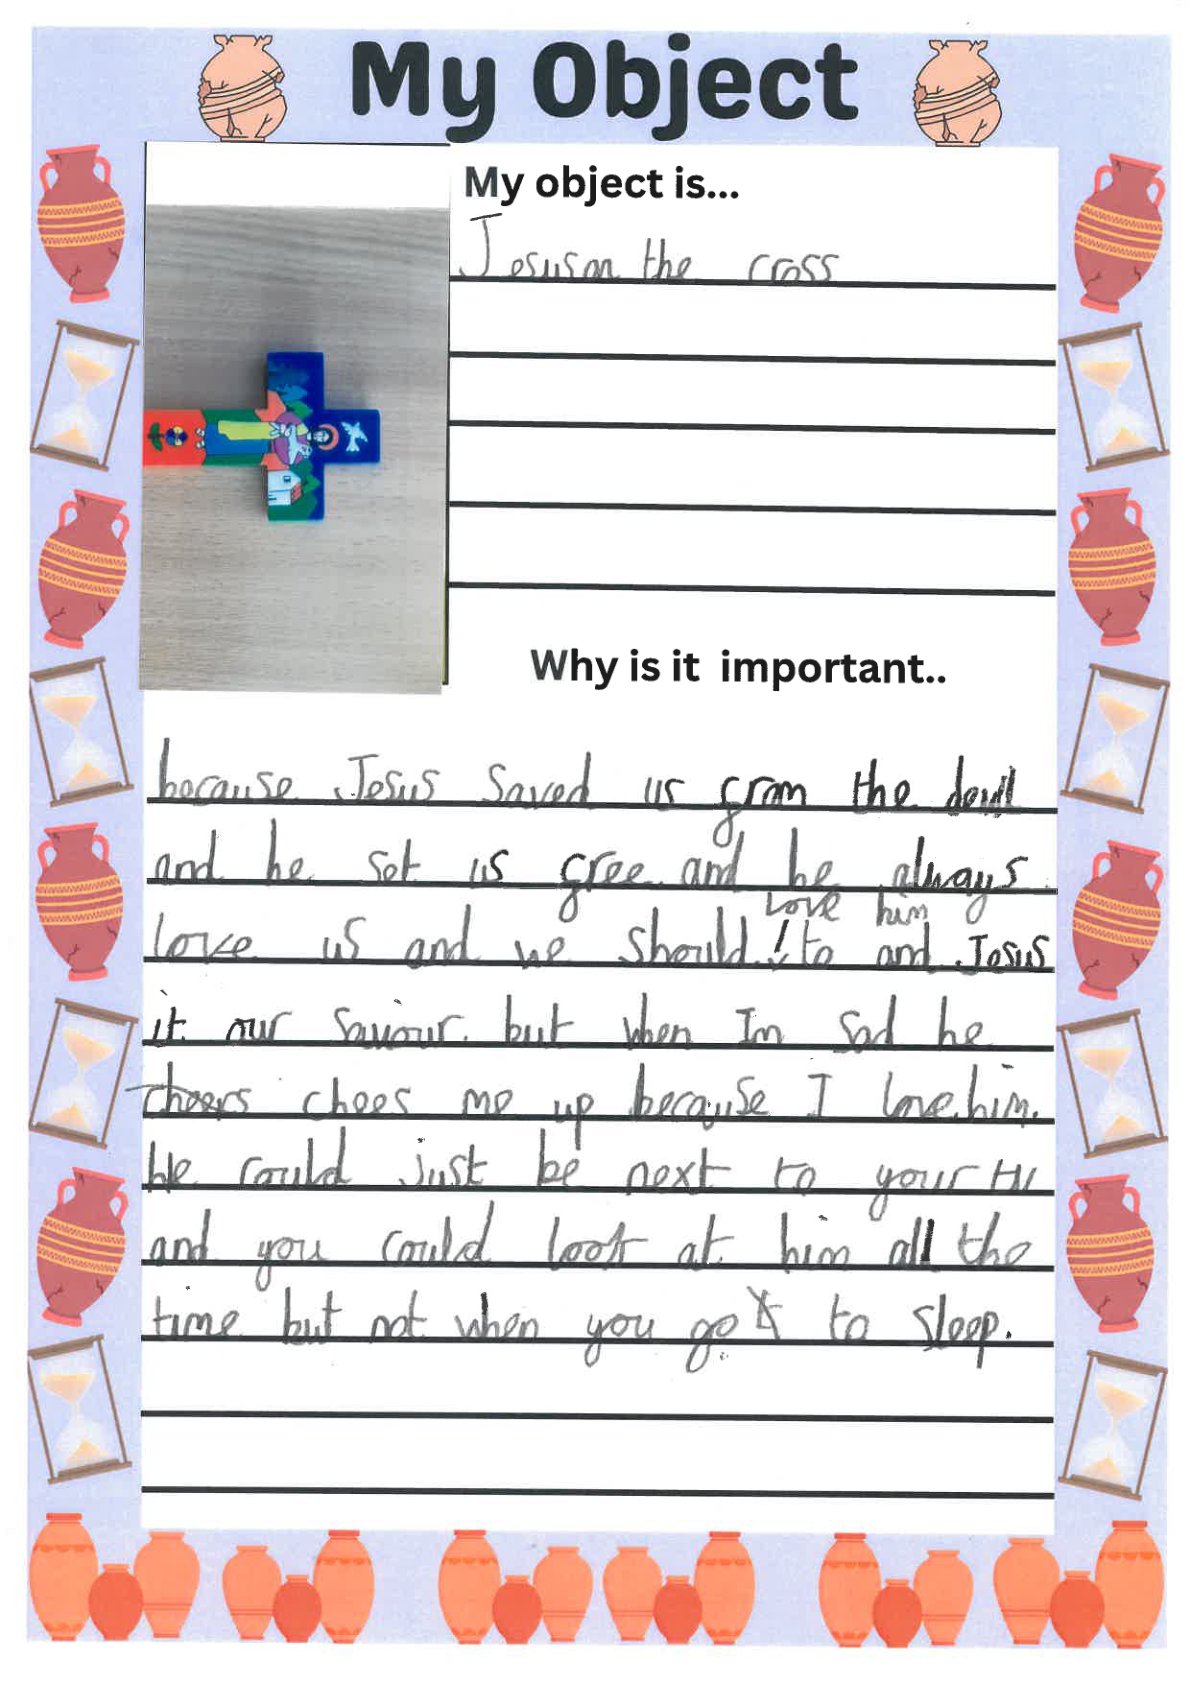 My Object
My object is...
Jesus on the cross
Why is it important..
because Jesus Saved us from the devil
and he set us free and he always
love him
love us and we should to and Jesus
it our saviour. but when Im sad he
cheers chees me up because I love him.
He could just be next to your TV
and you could look at him all the
time but not when you go to sleep.